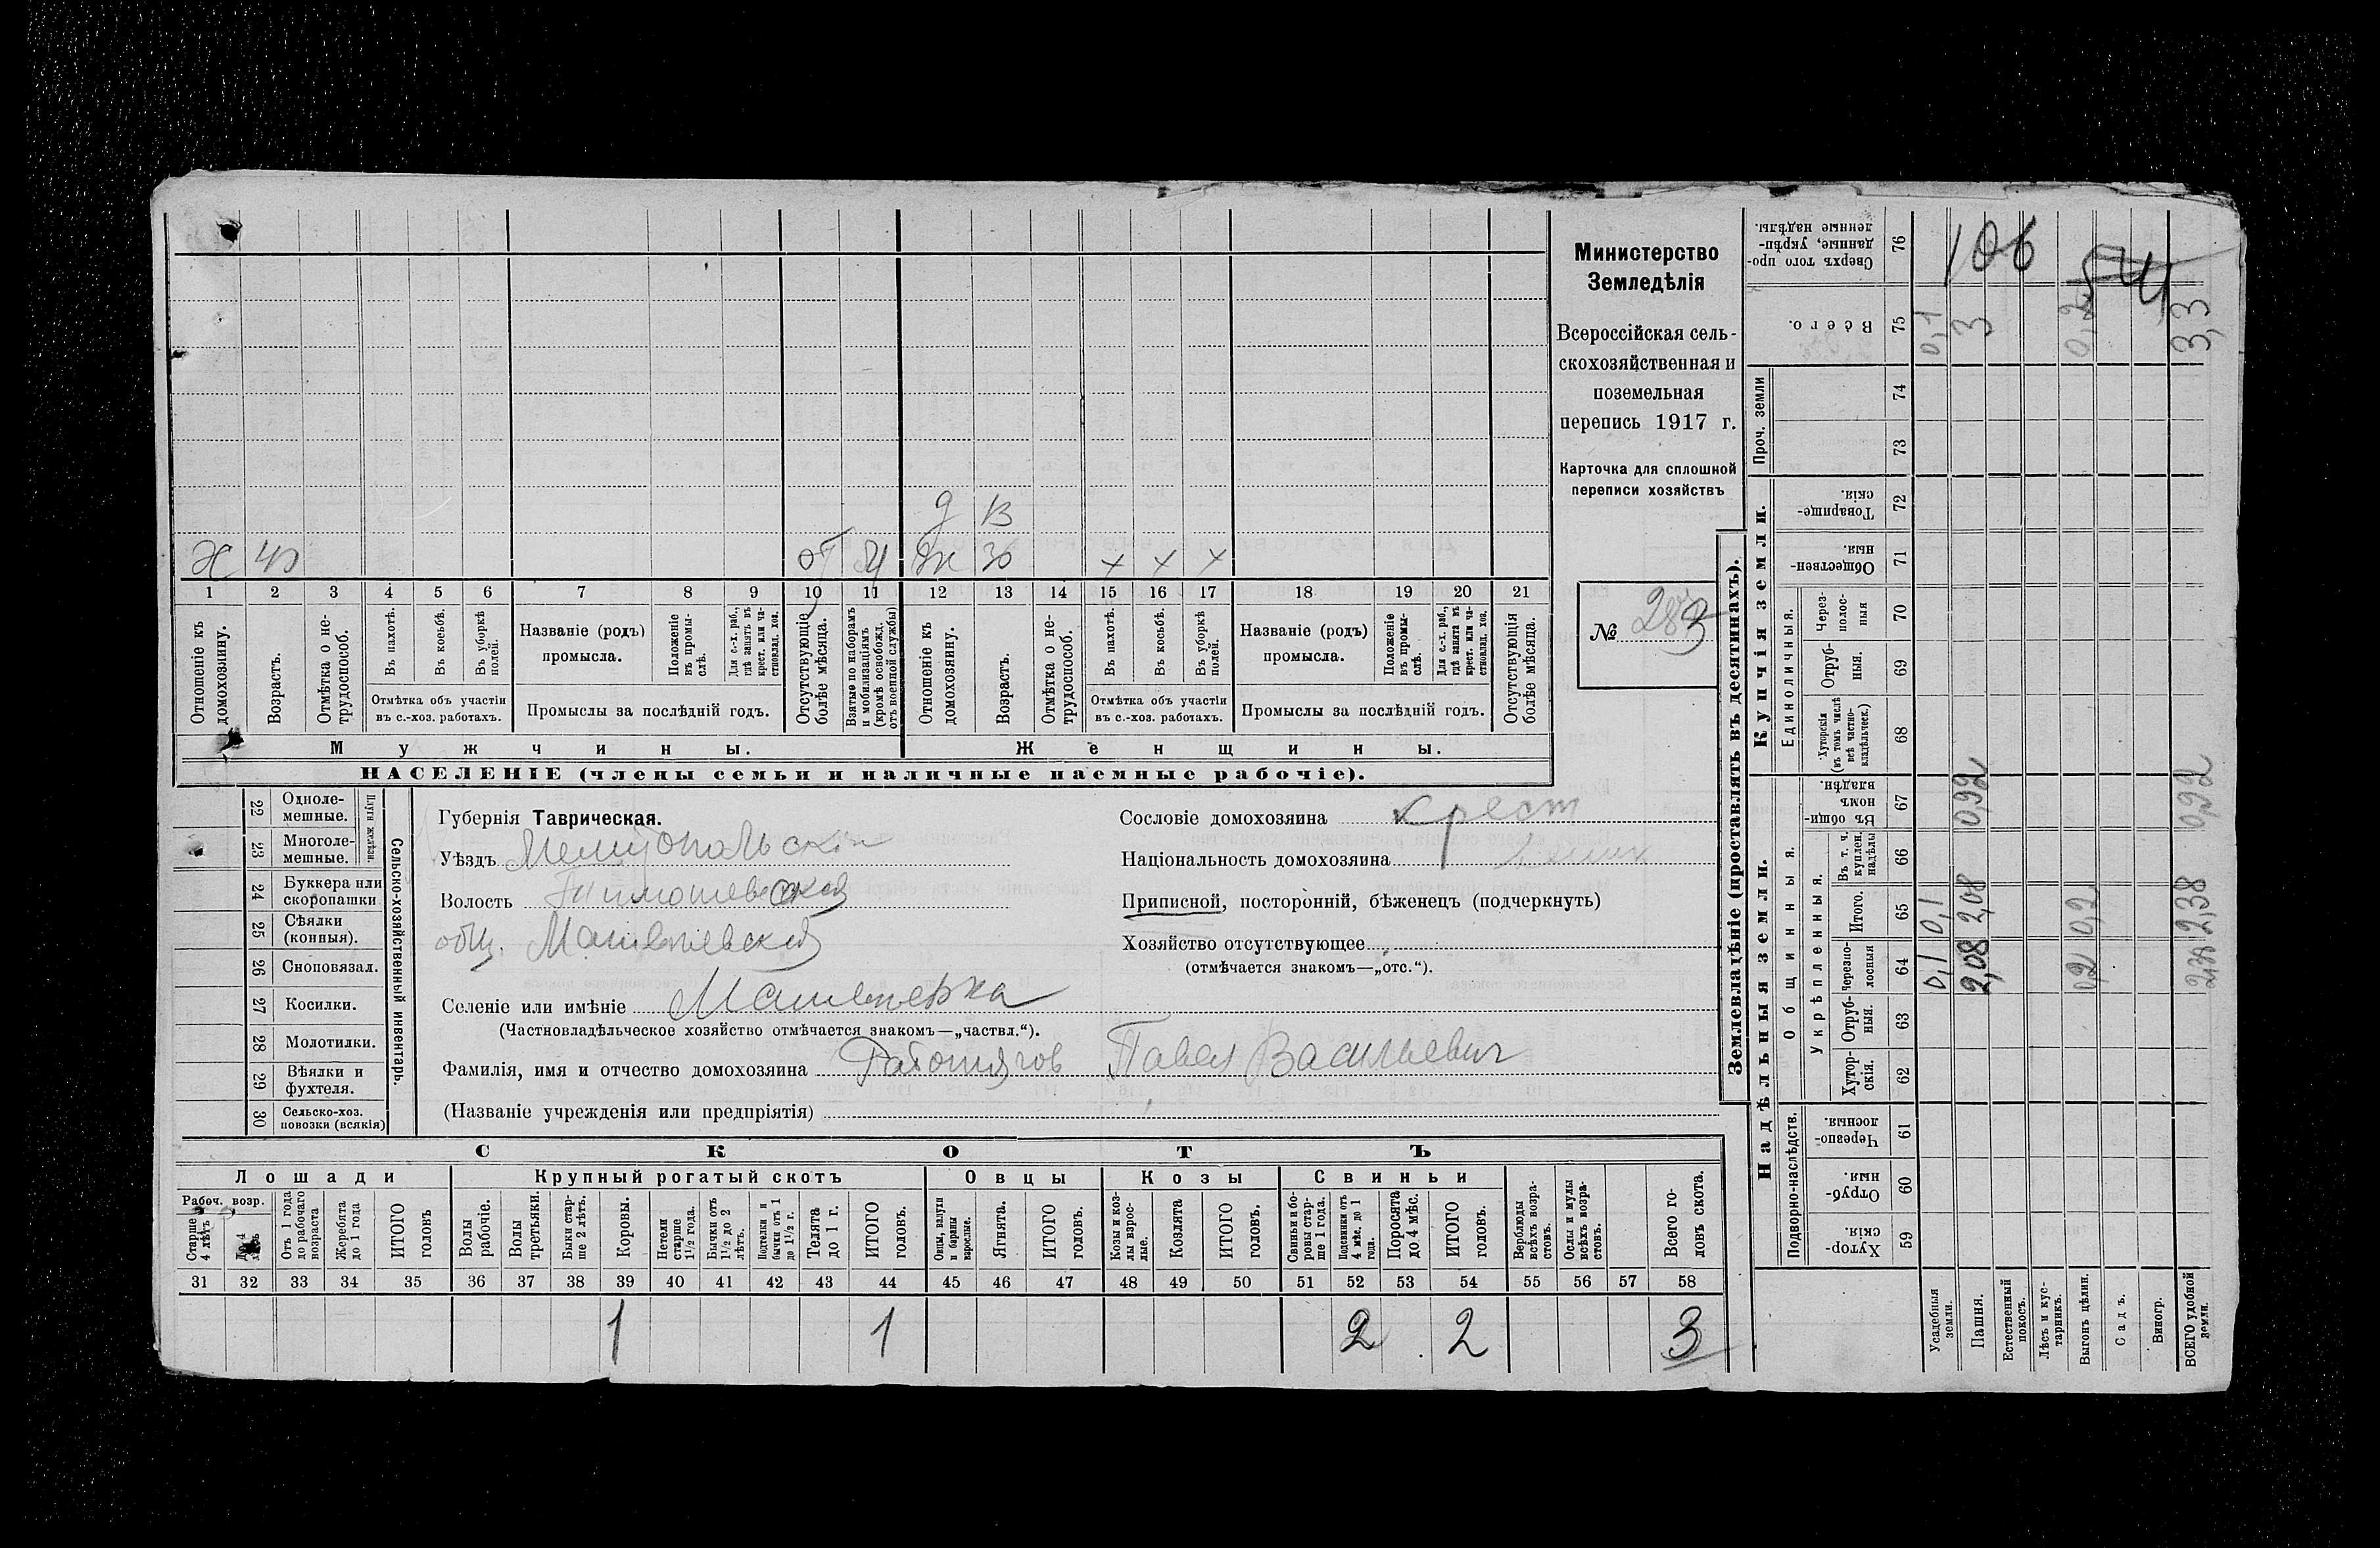 Министерство
Земледѣлія
Всероссійская сель-
скохозяйственная и
поземельная
перепись 1917 г.
Карточка для сплошной
переписи хозяйствъ
№ 283
д 13
Х 40 от Ж 36 × × ×
1 2 3 4 5 6 7 8 9 10 11 12 13 14 15 16 17 18 19 20 21
Отношеніе къ домохозяину.
Возрастъ.
Отмѣтка о не-трудоспособ.
Въ пахотѣ.
Въ косьбѣ.
Въ уборкѣ полей.
Отмѣтка объ участіи
въ с.-хоз. работахъ.
Названіе (родъ)
промысла.
Положеніе въ промы-слѣ.
Для с.-х. раб., гдѣ занятъ въ крест. или ча-стновлад. хоз.
Промыслы за послѣдній годъ.
Отсутствующіе болѣе мѣсяца.
Взятые по наборамъ и мобилизаціямъ (кромѣ освобожд. отъ военной службы)
Отношеніе къ домохозяину.
Возрастъ.
Отмѣтка о не-трудоспособ.
Въ пахотѣ.
Въ косьбѣ.
Въ уборкѣ полей.
Отмѣтка объ участіи
въ с.-хоз. работахъ.
Названіе (родъ)
промысла.
Положеніе въ промы-слѣ.
Для с.-х. раб., гдѣ занята въ крест. или ча-стновлад. хоз.
Промыслы за послѣдній годъ.
Отсутствующія болѣе мѣсяца.
Мужчины. Женщины.
НАСЕЛЕНІЕ (члены семьи и наличные наемные рабочіе).
Сельско-хозяйственный инвентарь.
Плуги желѣзн.
22 Одноле-мешные.
23 Многоле-мешные.
24 Буккера или скоропашки
25 Сѣялки (конныя).
26 Сноповязал.
27 Косилки.
28 Молотилки.
29 Вѣялки и фухтеля.
30 Сельско-хоз. повозки (всякія)
Губернія Таврическая.
Уѣздъ Мелитопольскій
Волость Тимошевской
общ. Матвеевской
Селеніе или имѣніе Матвеевка
(Частновладѣльческое хозяйство отмѣчается знакомъ—„частвл.“).
Фамилія, имя и отчество домохозяина Работягов Павел Васильевич
(Названіе учрежденія или предпріятія)
Сословіе домохозяина крест
Національность домохозяина
Приписной, посторонній, бѣженецъ (подчеркнуть)
Хозяйство отсутствующее
(отмѣчается знакомъ—„отс.“).
СКОТЪ
Лошади Крупный рогатый скотъ Овцы Козы Свиньи
Рабоч. возр.
Старше 4 лѣтъ
До 4 лѣтъ
Отъ 1 года до рабочаго возраста
Жеребята до 1 года
ИТОГО головъ
Волы рабочіе.
Волы третьяки.
Быки стар-ше 2 лѣтъ.
Коровы.
Петели старше 1½ года.
Бычки отъ 1½ до 2 лѣтъ.
Подтелки и бычки отъ 1 до 1½ г.
Телята до 1 г.
ИТОГО головъ.
Овцы, валухи и бараны взрослые.
Ягнята.
ИТОГО головъ.
Козы и коз-лы взрос-лые.
Козлята
ИТОГО головъ.
Свиньи и бо-ровы стар-ше 1 года.
Подсвинки отъ 4 мѣс. до 1 года.
Поросята до 4 мѣс.
ИТОГО головъ.
Верблюды всѣхъ возра-стовъ.
Ослы и мулы всѣхъ возра-стовъ.
Всего го-ловъ скота.
31 32 33 34 35 36 37 38 39 40 41 42 43 44 45 46 47 48 49 50 51 52 53 54 55 56 57 58
1 1 2 2 3
Землевладѣніе (проставлять въ десятинахъ).
Надѣльныя земли. Купчія земли. Проч. земли
Подворно-наслѣдств.
Общинныя.
Укрѣпленныя.
Единоличныя.
59 Хутор-скія.
60 Отруб-ныя.
61 Черезпо-лосныя.
62 Хутор-скія.
63 Отруб-ныя.
64 Черезпо-лосныя
65 Итого.
66 Въ т. ч. куплен. надѣлы
67 Въ общи-номъ владѣн.
68 Хуторскія (въ томъ числѣ всѣ частно-владѣльческ.)
69 Отруб-ныя.
70 Через-полос-ныя
71 Обществен-ныя.
72 Товарище-скія.
73
74
75 Всего.
76 Сверхъ того про-данные, укрѣп-ленные надѣлы.
Усадебныя земли. 0,1 0,1 0,1
Пашня. 2,08 2,08 0,92 3
Естественный покосъ.
Лѣсъ и кус-тарникъ.
Выгонъ цѣлин. 0,2 0,2 0,2
Садъ.
Виногр.
ВСЕГО удобной земли. 2,38 2,38 0,92 3,3
106